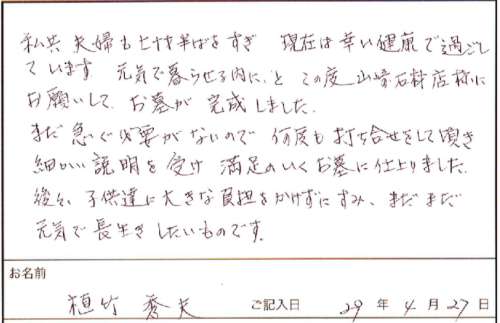 私共夫婦も七十半ばをすぎ 現在は幸い健康で過ごし
ています 元気で暮らせる内に、と この度 山崎石材店様に
お願いして、お墓が 完成しました。
まだ 急ぐ必要がないので 何度も打ち合せをして頂き
細かい説明を受け 満足のいくお墓に仕上りました。
後々、子供達に大きな負担をかけずにすみ、まだまだ
元気で長生きしたいものです。
お名前
植竹 秀夫
ご記入日 29 年 4 月 27 日